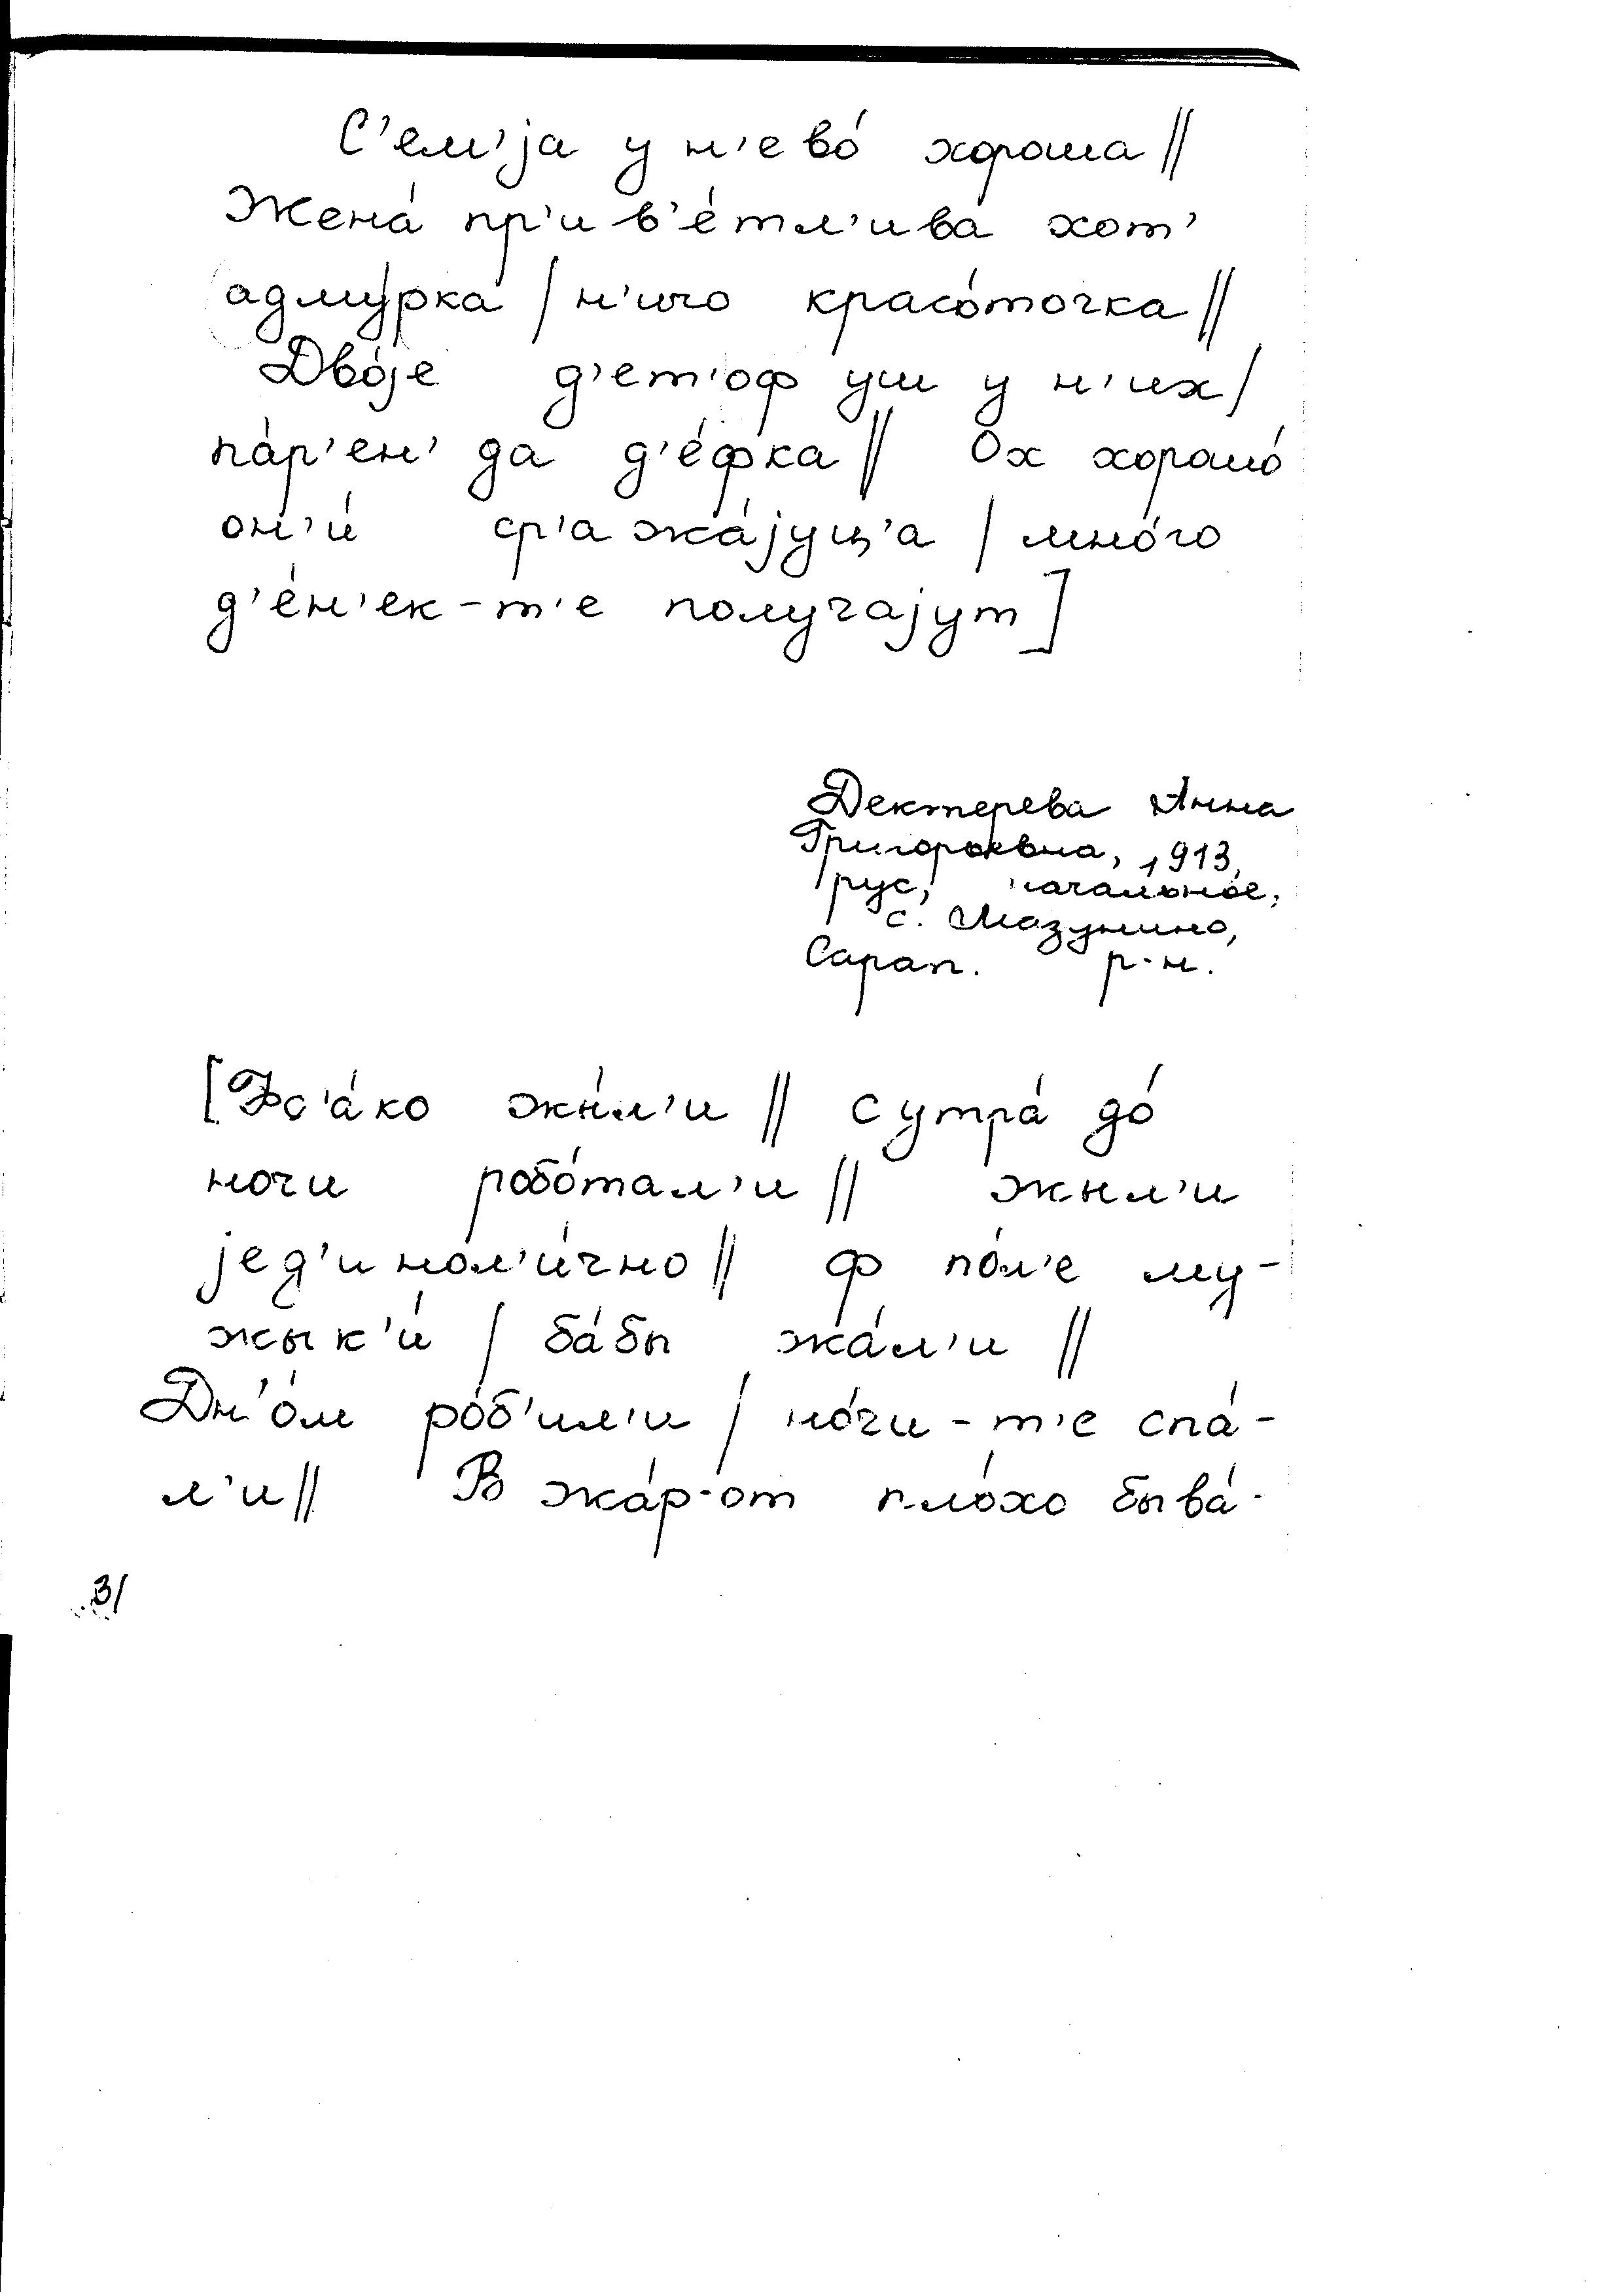 С'ем'jа у н'ево́ хороша ||
Жена́ пр'ив'е́тл'ива хот'
адму́рка / н'ичо красо́точка ||
Дво́jе д'ет'оф уш у н'их /
па́р'ен' да д'е́фка || Ох хорошо́
он'и́ ср'ажа́jуц'а / мно́го
д'е́н'ек-т'е получаjут]
Дектерева Анна
Григорьевна, 1913,
рус, начальное,
с. Мазунино,
Сарап. р-н.
[Фс'а́ко жы́л'и || с утра́ до́
ночи робо́тал'и || жыл'и
jед'инол'и́чно || ф по́л'е му-
жык'и́ / ба́бы жа́л'и ||
Дн'о́м ро́б'ил'и / но́чи-т'е спа́-
л'и || В жа́р-от пло́хо быва́-
31